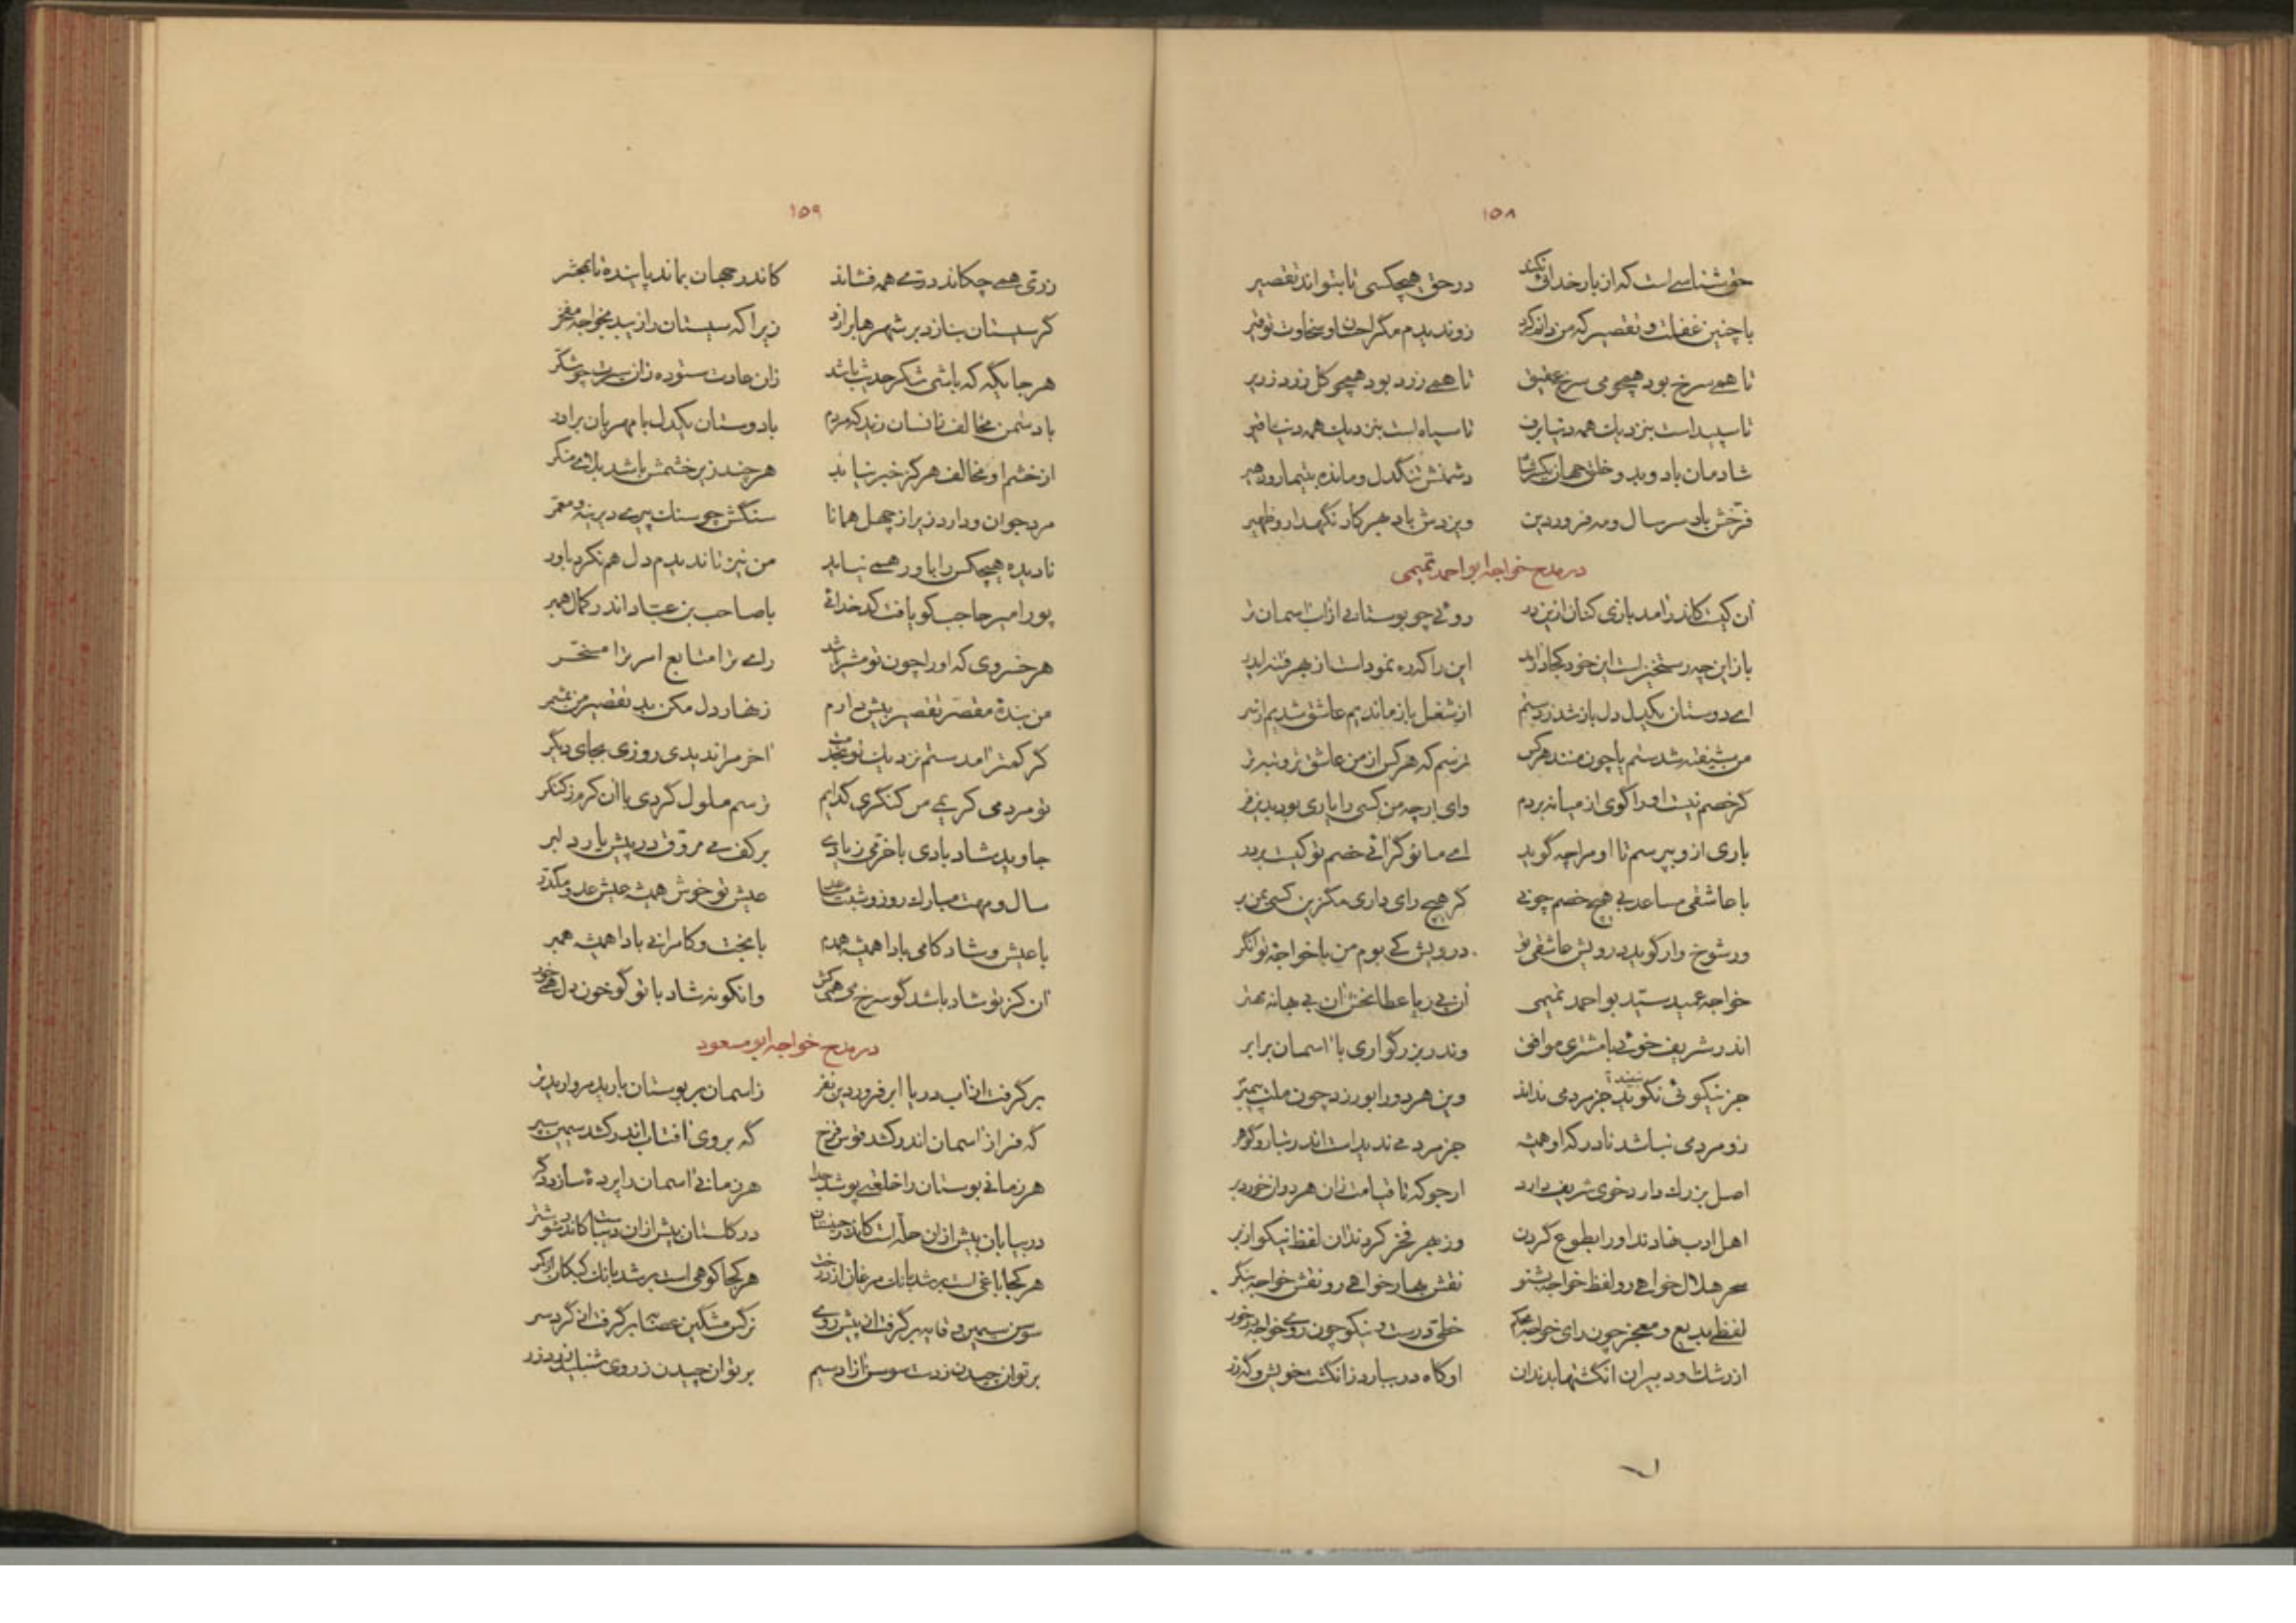 ۱۵۸
حق شناسی است که از بار خدائی نکند در حق هیچکسی تا بتواند تقصیر
با چنین غفلت و تقصیر که من دانم کرد زو ندیدم مگر احسان و سخاوت توفیر
تا همی سرخ بود همچو می سرخ عقیق تا همی زرد بود همچو گل زرد زریر
تا سپید است بنزدیک همه دنیا برف تا سیاه است بنزدیک همه دنیا قیر
شادمان باد و بدو خلق جهان یکسر شاد دشمنش تنگدل و مانده بتیمار و زحیر
فرخش باد سر سال و مه فروردین ویزدش باد بهر کار نگهدار و ظهیر
در مدح خواجه ابو احمد تمیمی
آن کیست کاندر آمد بازی کنان ازین در روئی چو بوستانی از آب آسمان تر
باز این چه رستخیز است این خود کجا در آید این را که ره نمود است از بهر فتنه ایدر
ای دوستان یکدل دل باز شد ز دستم از شغل باز ماندیم عاشق شدیم از سر
من شیفته شدستم یا چون منند هر کس ترسم که هر کس از من عاشق تر و بتر تر
گر خصم نیست او را گوی از میانه بردم وای ار چه من کسی را یاری بود بدین فر
باری ازو بپرسم تا او مرا چه گوید ای ماتو گرانی خصم تو کیست بر در
با عاشقی مساعد بی هیچ خصم چونی گر هیچ رای داری مگزین کسی بمن بر
ور شوخ وار گوید درویش عاشقی تو درویش کی بوم من با خواجه توانگر
خواجه عمید سید بو احمد تمیمی آن بی ریا عطا بخش آن بی بهانه مهتر
اندر شریف خوئی با مشتری موافق وندر بزرگواری با آسمان برابر
جز نیکوئی نگوید جز مردمی نداند وین هر دو را بورزد چون ملت پیمبر
زو مردمی نباشد نادر که او همیشه جز مردمی ندید است اندر تبار و گوهر
اصل بزرگ دارد خوی شریف دارد ارجو که تا قیامت زان هر دوان خورد بر
اهل ادب نهادند او را بطوع گردن وز بهر فخر کردند آن لفظ نیکو از بر
سحر حلال خواهی رو لفظ خواجه بشنو نقش بهار خواهی رو نقش خواجه بنگر
لفظی بدیع و معجز چون رای خواجه محکم خطی درست و نیکو چون روی خواجه در خور
از رشک او دبیران انگشتها بدندان او گاه در ببارد ز انگشت خویش و گه زر
۱۵۹
زر نی همی چکاند در نی همی فشاند کاندر جهان بماند پاینده تا بمحشر
گر سیستان بنازد بر شهرها برازد زیرا که سیستان را زیبد بخواجه مفخر
هر جایگه که باشی شکر حدیث باشد زان عادت ستوده زان سیرت چو شکر
با دشمن مخالف زانسان زید که مردم با دوستان یکدل با مهربان برادر
از خشم او مخالف هرگز خبر نیابد هر چند زیر خشمش باشد بلای منکر
مرد جوان و دارد زیر از چهل همانا سنگش چو سنگ پیری دیرینه و معمر
نادیده هیچکس را باور همی نیاید من نیز تا ندیدم دل هم نکرد باور
پور امیر حاجب کو یافت کدخدائی با صاحب بن عباد اندر کمال همبر
هر خسروی که او را چون تو مشیر باشد رای ترا متابع امر ترا مسخر
من بنده مقصر تقصیر بیش دارم زنهار دل مکن بد تقصیر من بمشمر
گر کمتر آمدستم نزدیک تو بخدمت آخر مرا ندیدی روزی بجای دیگر
تو مردمی کریمی من کنگری گدایم ترسم ملول گردی با آن کرم ز کنگر
جاوید شاد بادی با خرمی زیادی بر کف می مروق در پیش یار دلبر
سال و مهت مبارک روز و شبت مساعد عیش تو خوش همیشه عیش عدو مکدر
با عیش و شاد کامی بادا همیشه همدم با بخت و کامرانی بادا همیشه همبر
آن کز تو شاد باشد گو سرخ می همی کش وانکو نه شاد با تو گو خون دل همی خور
در مدح خواجه ابو مسعود
برگرفت از آب دریا ابر فروردین نفر ز آسمان بر بوستان بارید مروارید تر
گه فراز آسمان اندر کشد قوس قزح گه بروی آفتاب اندر کشد سیمین سپر
هر زمانی بوستان را خلعتی پوشد جدا هر زمانی آسمان را پرده سازد دگر
در بیابان بیش از آن حله است کاندر در گلستان بیش از آن دیبا کاندر شوشتر
هر کجا باغی است بر شد بانگ مرغان از درخت هر کجا کوهی است بر شد بانگ کبکان از کمر
سوسن سیمین وقایه بر گرفت از پیش روی نرگس مشکین عصابه بر گرفت از گرد سر
بر توان چیدن ز دست سوسن آزاد سیم بر توان چیدن ز روی شنبلید زرد زر